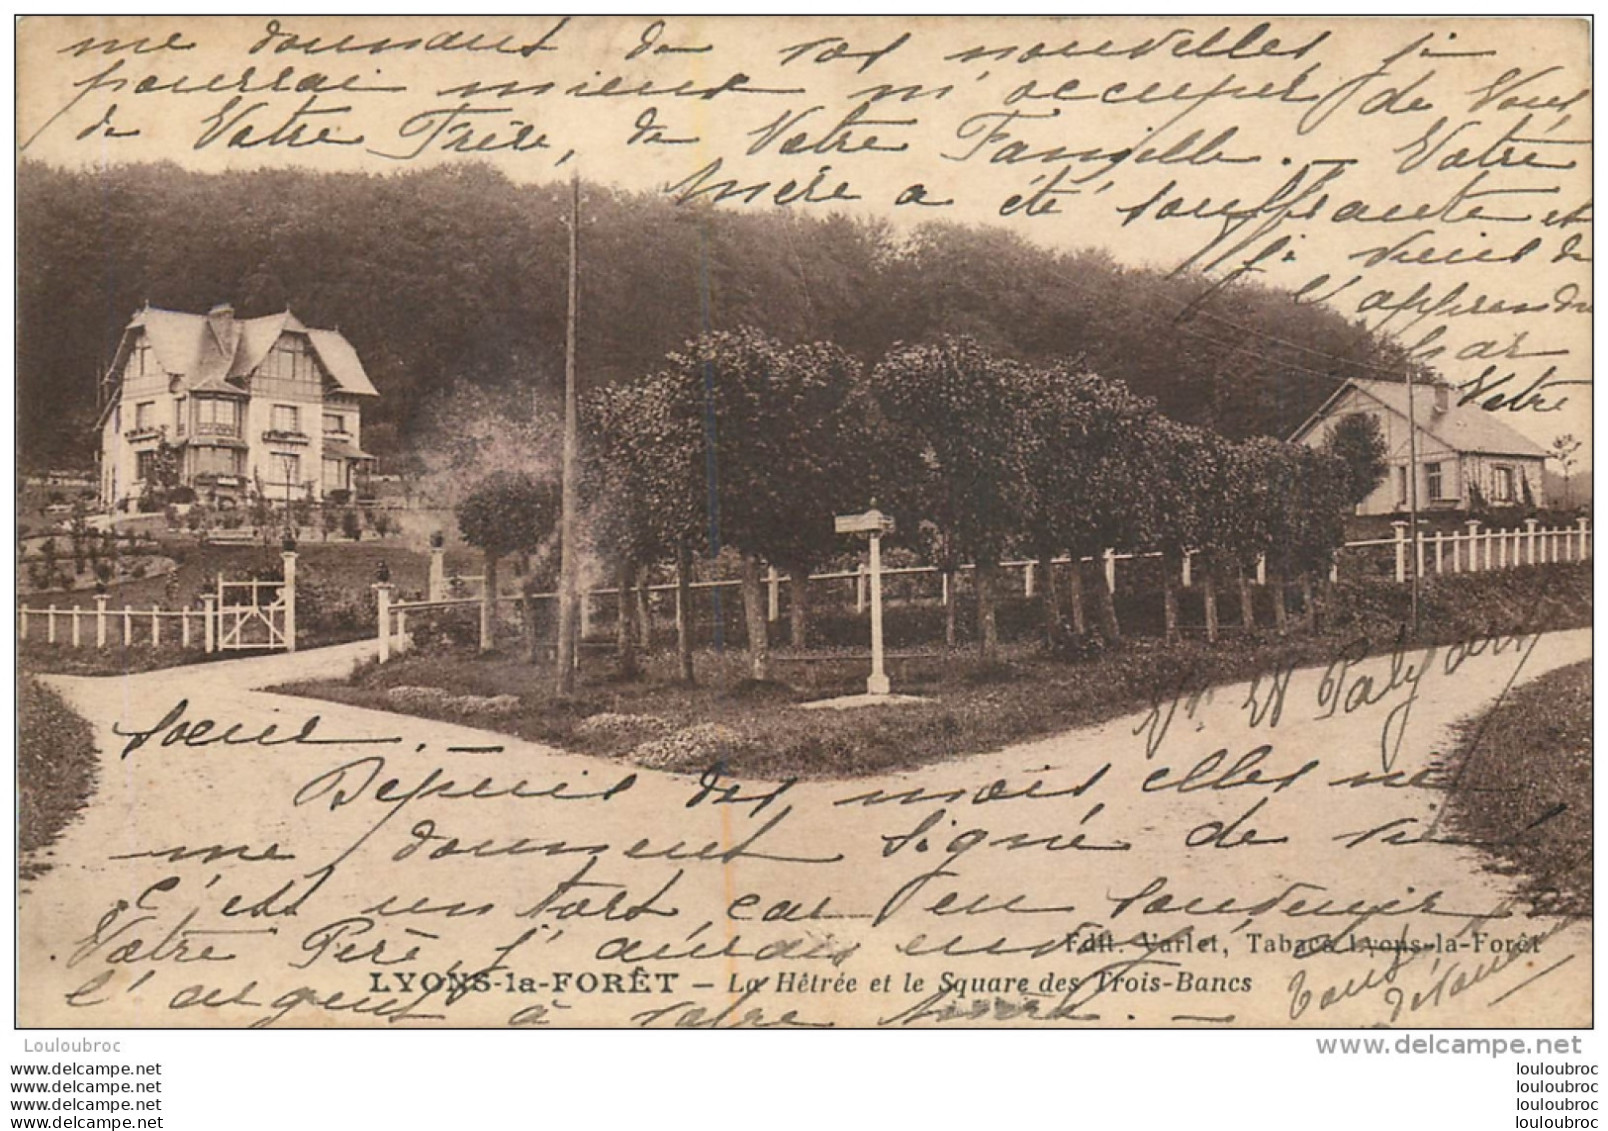 me donnant de vos nouvelles je
pourrai mieux m'occuper de Vous,
de Votre Frère, de Votre Famille. - Votre
Mère a été souffrante et
je viens de
l'apprendre
par
Votre
soeur. -
Depuis des mois elles ne
me donnent signe de vie
C'est un tort car en souvenir
Votre Père, j'aurais envoyé
l'argent à votre
Edit. Varlet, Tabacs Lyons-la-Forêt
LYONS-la-FORÊT - La Hêtrée et le Square des Trois-Bancs
Louloubroc
www.delcampe.net
www.delcampe.net
www.delcampe.net
www.delcampe.net
louloubroc@delcampe.net
louloubroc
louloubroc
louloubroc
louloubroc